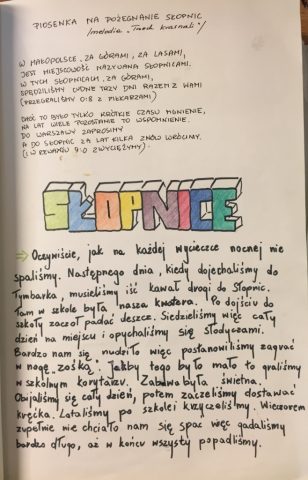 PIOSENKA NA POŻEGNANIE SŁOPNIC
/melodia „Trzech krasnali"/
W MAŁOPOLSCE, ZA GÓRAMI, ZA LASAMI,
JEST MIEJSCOWOŚĆ NAZYWANA SŁOPNICAMI.
W TYCH SŁOPNICACH, ZA GÓRAMI,
SPĘDZILIŚMY CUDNE TRZY DNI RAZEM Z WAMI
(PRZEGRALIŚMY 0:8 Z PIEKARZAMI)
CHOĆ TO BYŁO TYLKO KRÓTKIE CZASU MGNIENIE,
NA LAT WIELE POZOSTANIE TO WSPOMNIENIE.
DO WARSZAWY ZAPROSIMY
A DO SŁOPNIC ZA LAT KILKA ZNÓW WRÓCIMY.
(I W REWANŻU 9:0 ZWYCIĘŻYMY).
SŁOPNICE
Oczywiście, jak na każdej wycieczce nocnej nie
spaliśmy. Następnego dnia, kiedy dojechaliśmy do
Tymbarka, musieliśmy iść kawał drogi do Słopnic.
Tam w szkole była nasza kwatera. Po dojściu do
szkoły zaczoł padać deszcz. Siedzieliśmy więc cały
dzień na miejscu i opychaliśmy się słodyczami.
Bardzo nam się nudziło więc postanowiliśmy zagrać
w nogę „zośką". Jakby tego było mało to graliśmy
w szkolnym korytarzu. Zabawa była świetna.
Obijaliśmy się cały dzień, potem zaczeliśmy dostawać
kręćka. Lataliśmy po szkole i krzyczeliśmy. Wieczorem
zupełnie nie chciało nam się spać więc gadaliśmy
bardzo długo, aż w końcu wszysty popadliśmy.